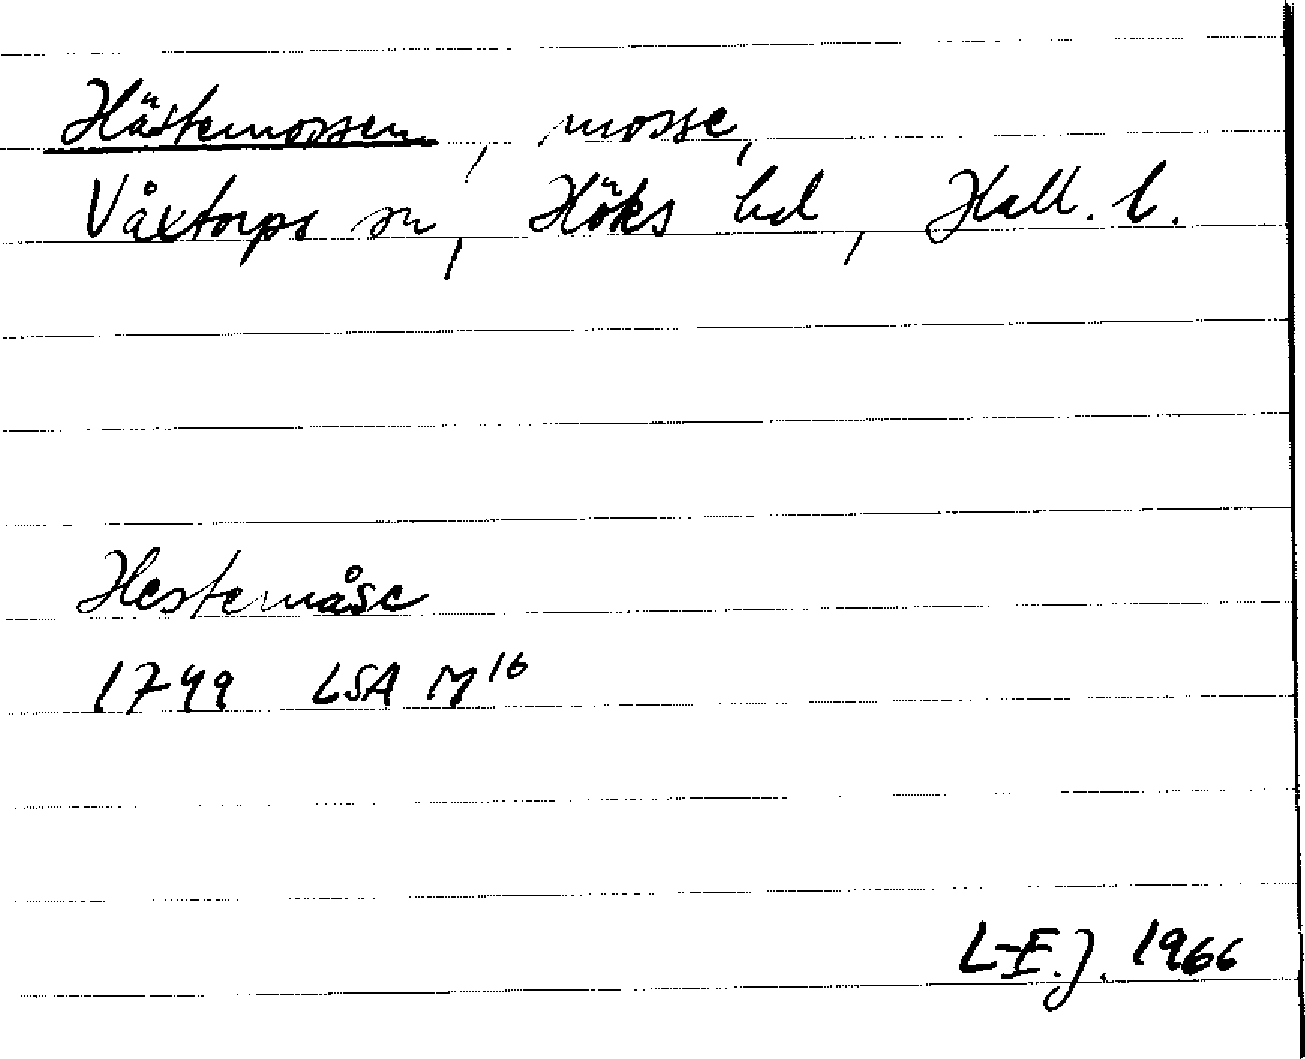 Hästemossen, mosse,
Våxtorps sn, Höks hd, Hall. l.
Hestemåse
1799 LSA M16
L-E.J. 1966